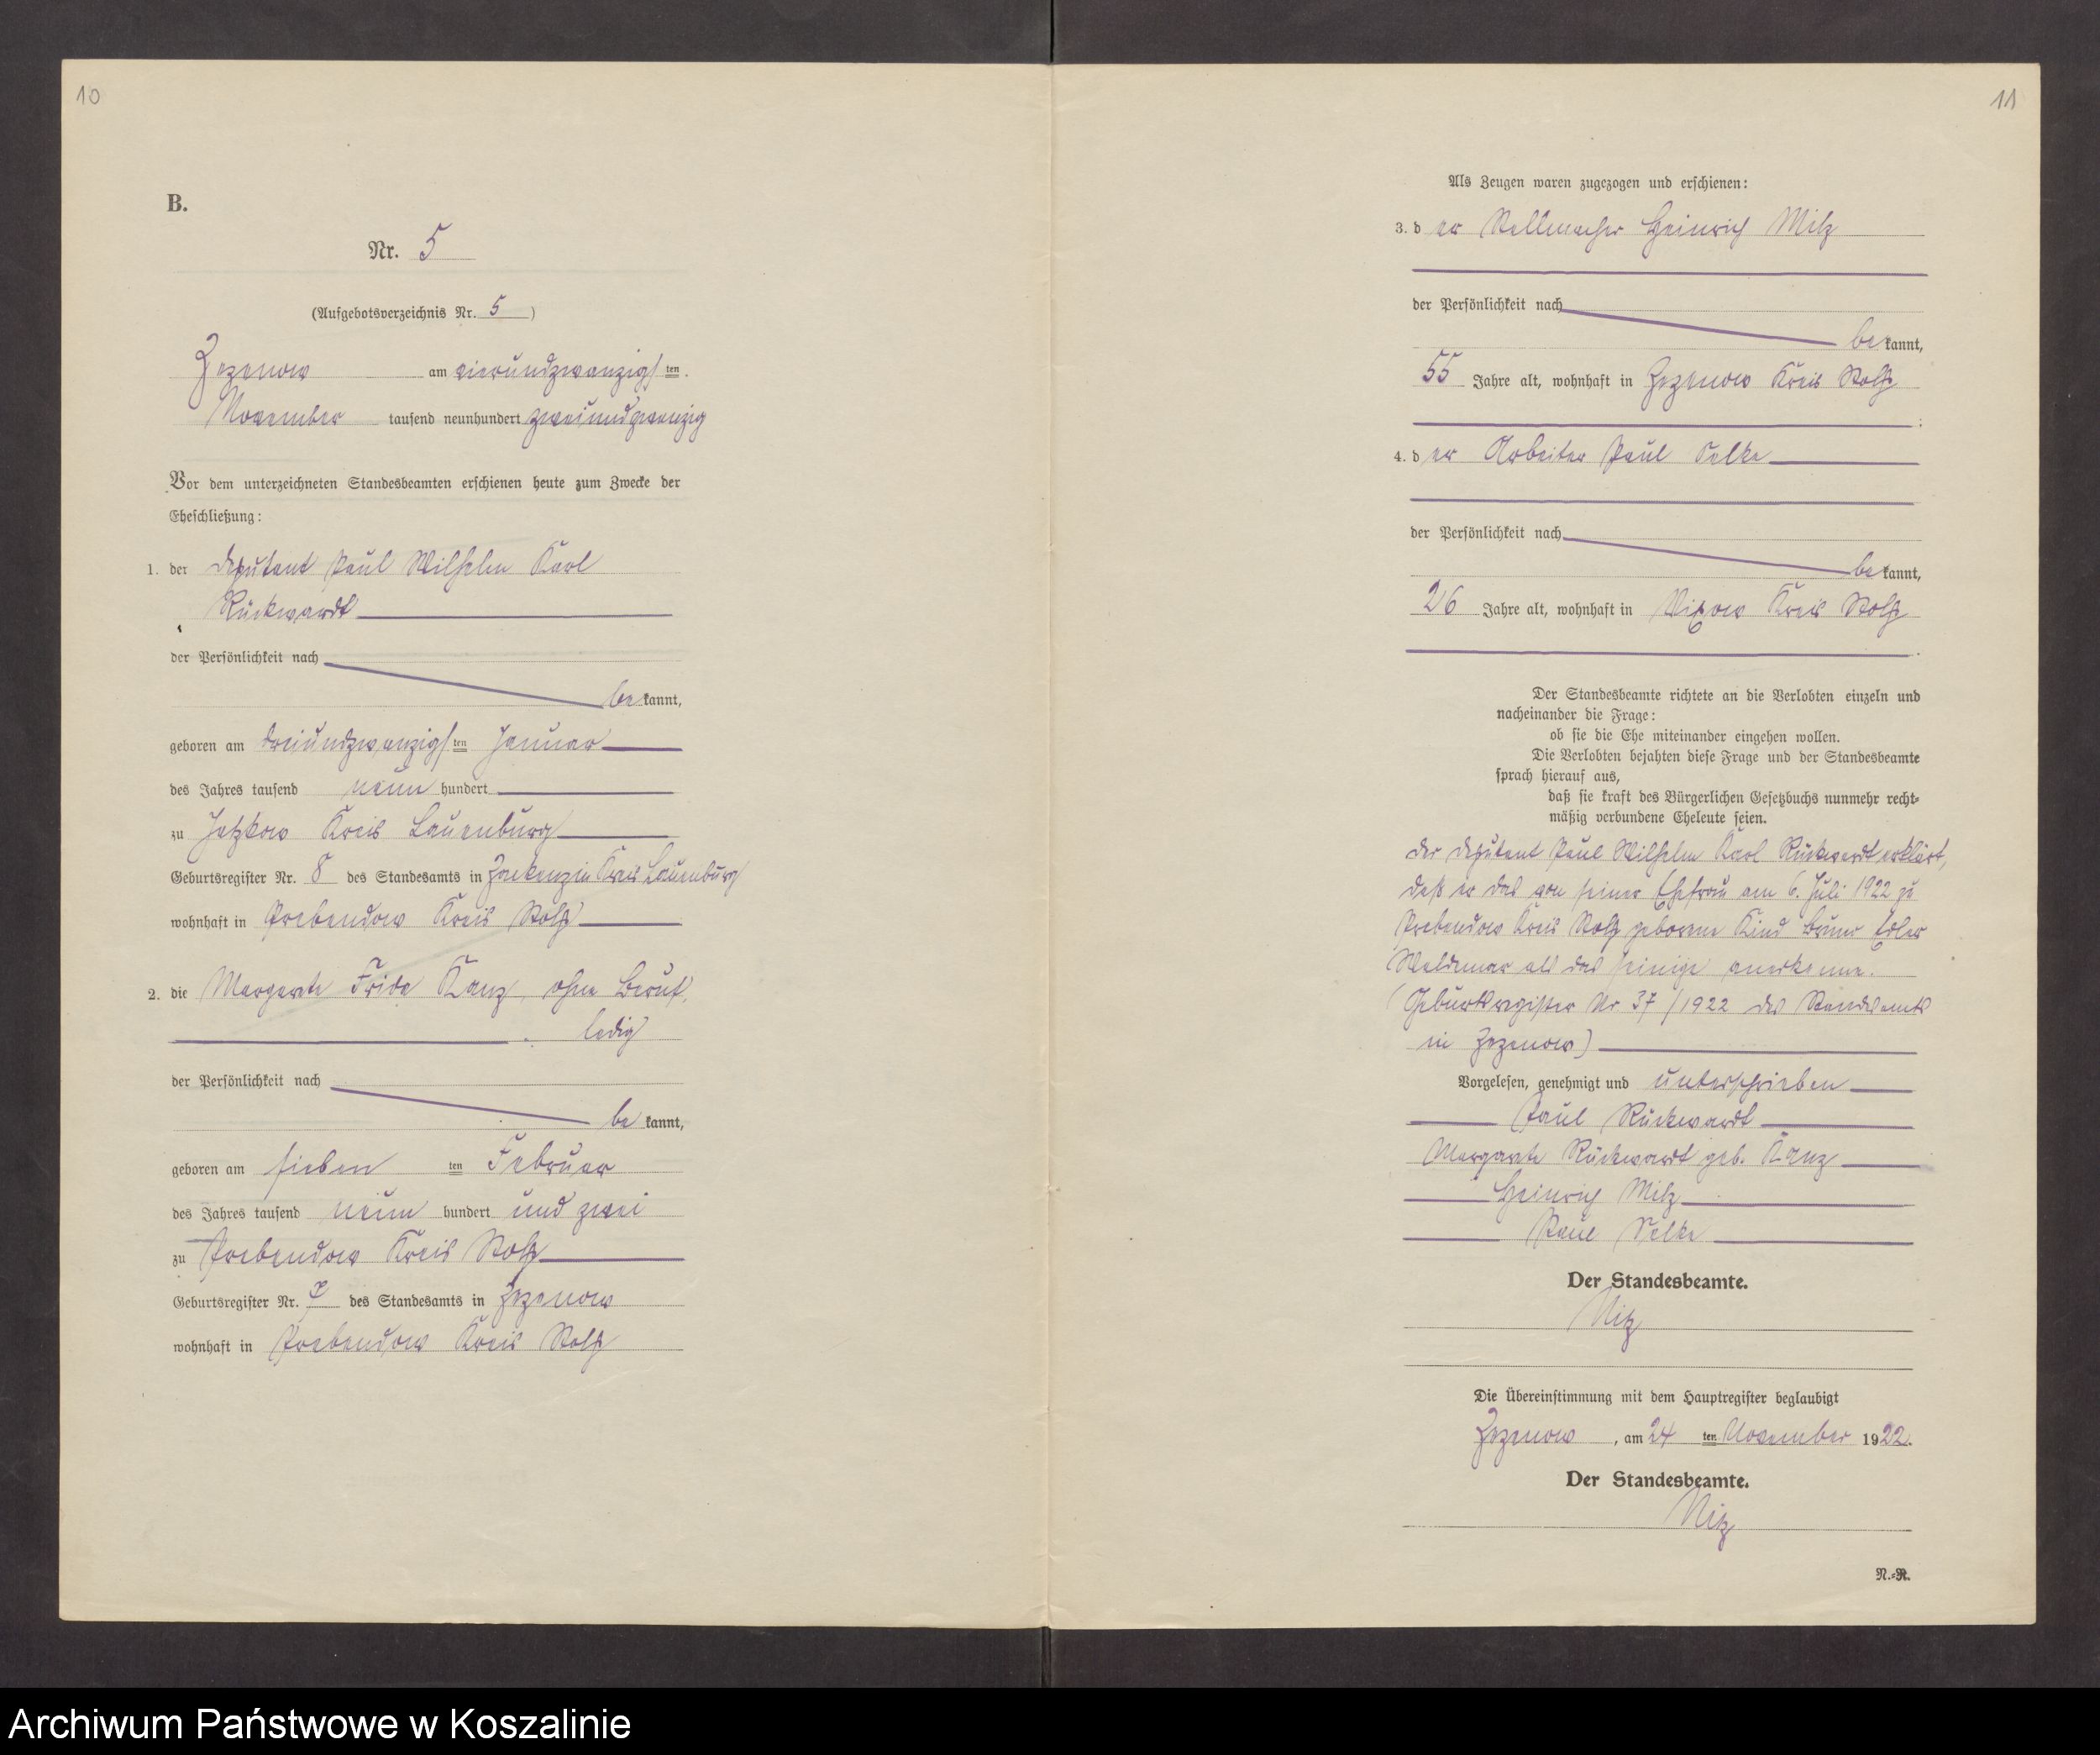 10
B.
Nr. 5
(Aufgebotsverzeichnis Nr. 5)
Zezenow am vierundzwanzigsten
November tausend neunhundert zweiundzwanzig
Vor dem unterzeichneten Standesbeamten erschienen heute zum Zwecke der
Eheschließung:
1. der Deputant Paul Wilhelm Karl
Rückwardt
der Persönlichkeit nach
bekannt,
geboren am dreiundzwanzigsten Januar
des Jahres tausend neunhundert
zu Jatzkow Kreis Lauenburg
Geburtsregister Nr. 8 des Standesamts in Zackenzin Kreis Lauenburg
wohnhaft in Prebendow Kreis Stolp
2. die Margarete Frida Kanz, ohne Beruf,
ledig
der Persönlichkeit nach
bekannt,
geboren am siebenten Februar
des Jahres tausend neunhundert und zwei
zu Prebendow Kreis Stolp
Geburtsregister Nr. des Standesamts in Zezenow
wohnhaft in Prebendow Kreis Stolp
11
Als Zeugen waren zugezogen und erschienen:
3. der Stellmacher Heinrich Milz
der Persönlichkeit nach
bekannt,
55 Jahre alt, wohnhaft in Zezenow Kreis Stolp
;
4. der Arbeiter Paul Selke
der Persönlichkeit nach
bekannt,
26 Jahre alt, wohnhaft in Vixow Kreis Stolp
.
Der Standesbeamte richtete an die Verlobten einzeln und
nacheinander die Frage:
ob sie die Ehe miteinander eingehen wollen.
Die Verlobten bejahten diese Frage und der Standesbeamte
sprach hierauf aus,
daß sie kraft des Bürgerlichen Gesetzbuchs nunmehr recht-
mäßig verbundene Eheleute seien.
Der Deputant Paul Wilhelm Karl Rückwardt erklärt,
daß er das von seiner Ehefrau am 6. Juli 1922 zu
Prebendow Kreis Stolp geborene Kind Bruno
Waldemar als das seinige anerkenne.
(Geburtsregister Nr 37/1922 des Standesamts
in Zezenow)
Vorgelesen, genehmigt und unterschrieben
Paul Rückwardt
Margarete Rückwardt geb. Kanz
Heinrich Milz
Paul Selke
Der Standesbeamte.
Nitz
Die Übereinstimmung mit dem Hauptregister beglaubigt
Zezenow, am 24 ten November 1922.
Der Standesbeamte.
Nitz
N.-R.
Archiwum Państwowe w Koszalinie